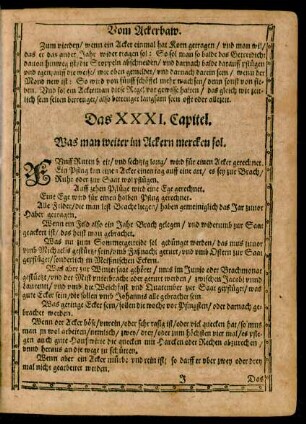 Vom Ackerbaw.
Zum vierden/ wenn ein Acker einmal hat Korn getragen/ vnd man wil/
das er das ander Jahr wider tragen sol: So sol man so balde das Getreidicht
dauon hinweg ist/ die Stoppeln abschneiden/ vnd darnach balde darauff pflügen
vnd egen/ auff die weise/ wie oben gemeldet/ vnd darnach darein seen/ wenn der
Mond new ist: So wird von fünff schöffel mehr wachsen/ denn sonst von
Vnd sol ein Ackerman diese Regel vor gewisse halten/ das gleich wie
lich sein seinen betrueget/ also betreuget langsam seen offt oder allezeit.
Das XXXI. Capitel.
Was man weiter im Ackern mercken sol.
Fünff Ruten breit/ vnd sechzig lang/ wird für einen Acker gerechnet.
Ein Pflug kan einen Acker einen tag auff eine art/ es sey zur Brach/
Ruhr oder zur Saat vmpflügen.
Auff zehen Pflüge wird eine Ege gerechnet.
Eine Ege wird für einen halben Pflug gerechnet.
Alle Felder/ die man lest Brache liegen/ haben gemeiniglich das Jar zuuor
Haber getragen.
Wenn ein Feld also ein Jahr Brach gelegen/ vnd widerumb zur Saat
geackert ist/ das heist man gebrachet.
Was nu zum Sommergetreide sol gedünget werden/ das mus zuuor
vmb Michaelis gestürtzt sein/ vmb Fasnacht geruret/ vnd vmb Ostern zur Saat
gepflüget/ sonderlich in Meissnischen Eckern.
Was aber zur Wintersaat gehöret/ mus im Junio oder Brachmonat
gestürtzt/ vnd der Mist vnterbracht oder geruret werden/ zwischen Jacobi vnd
vnd vmb die Weichfast vnd Quatember zur Saat gepflüget/ was
gute Ecker sein/ die sollen vmb Johannis alle gebrachet sein.
Was geringe Ecker sein/ sollen die woche vor Pfingsten/ oder darnach gebrachet
werden.
Wenn der Acker böse/ vnrein/ oder sehr rasicht ist/ oder viel
man jn zu viel arbeiten/ nemlich/ zwey/ drey/ oder zum höchsten vier mal/ es
gen auch gute Haußwirte die quecken mit Hacken oder Rechen abzurechen/
vnd heraus an die wege zu stürtzen.
Wenn aber ein Acker mürbe vnd rein ist/ so darff er vber zwey oder drey
mal nicht gearbeitet werden.
J Das